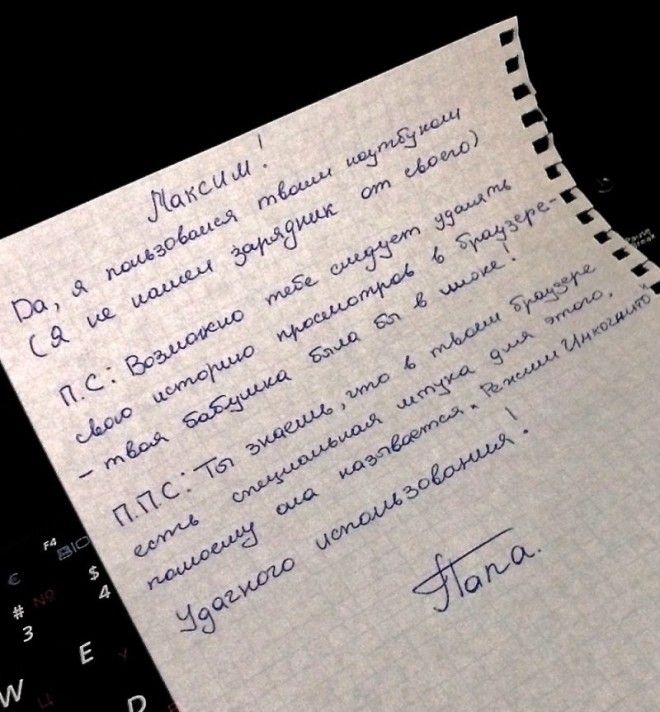 Максим!
Да, я пользовался твоим ноутбуком
(я не нашел зарядник от своего)
П.С: Возможно тебе следует удалять
свою историю просмотров в браузере-
- твоя бабушка была бы в шоке!
П.П.С: Ты знаешь, что в твоем браузере
есть специальная штука для этого,
помоему она называется "Режим Инкогнито"
Удачного использования!
Папа.
F4
€
$
4
#
3
NO
E
W
D